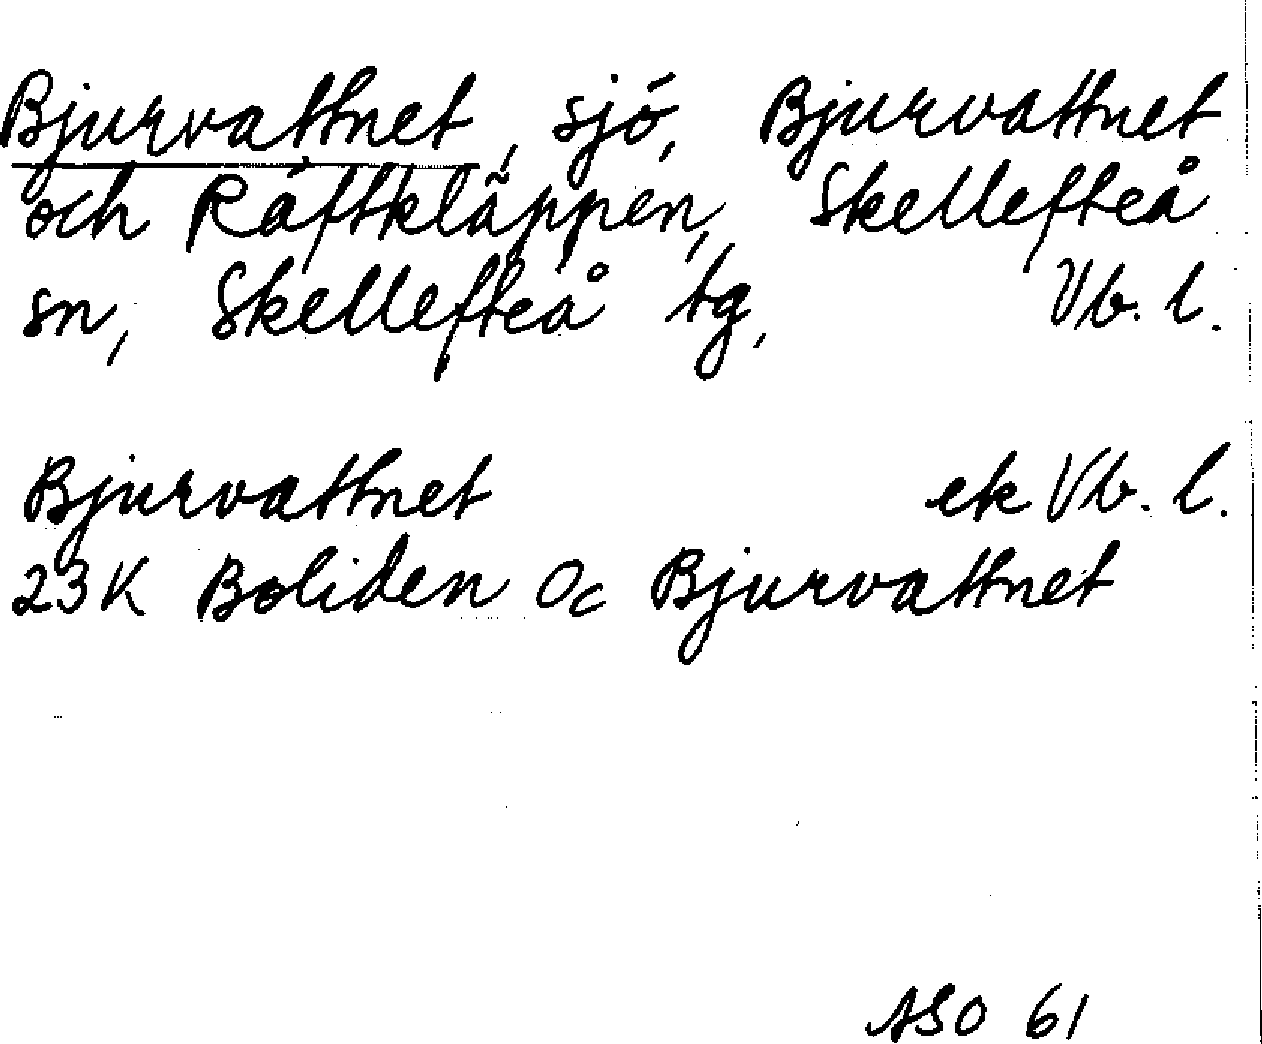 Bjurvattnet, sjö, Bjurvattnet
och Räftkläppen, Skellefteå
sn, Skellefteå tg, Vb. l.
Bjurvattnet ek Vb. l.
23K Boliden 0c Bjurvattnet
ASO 61